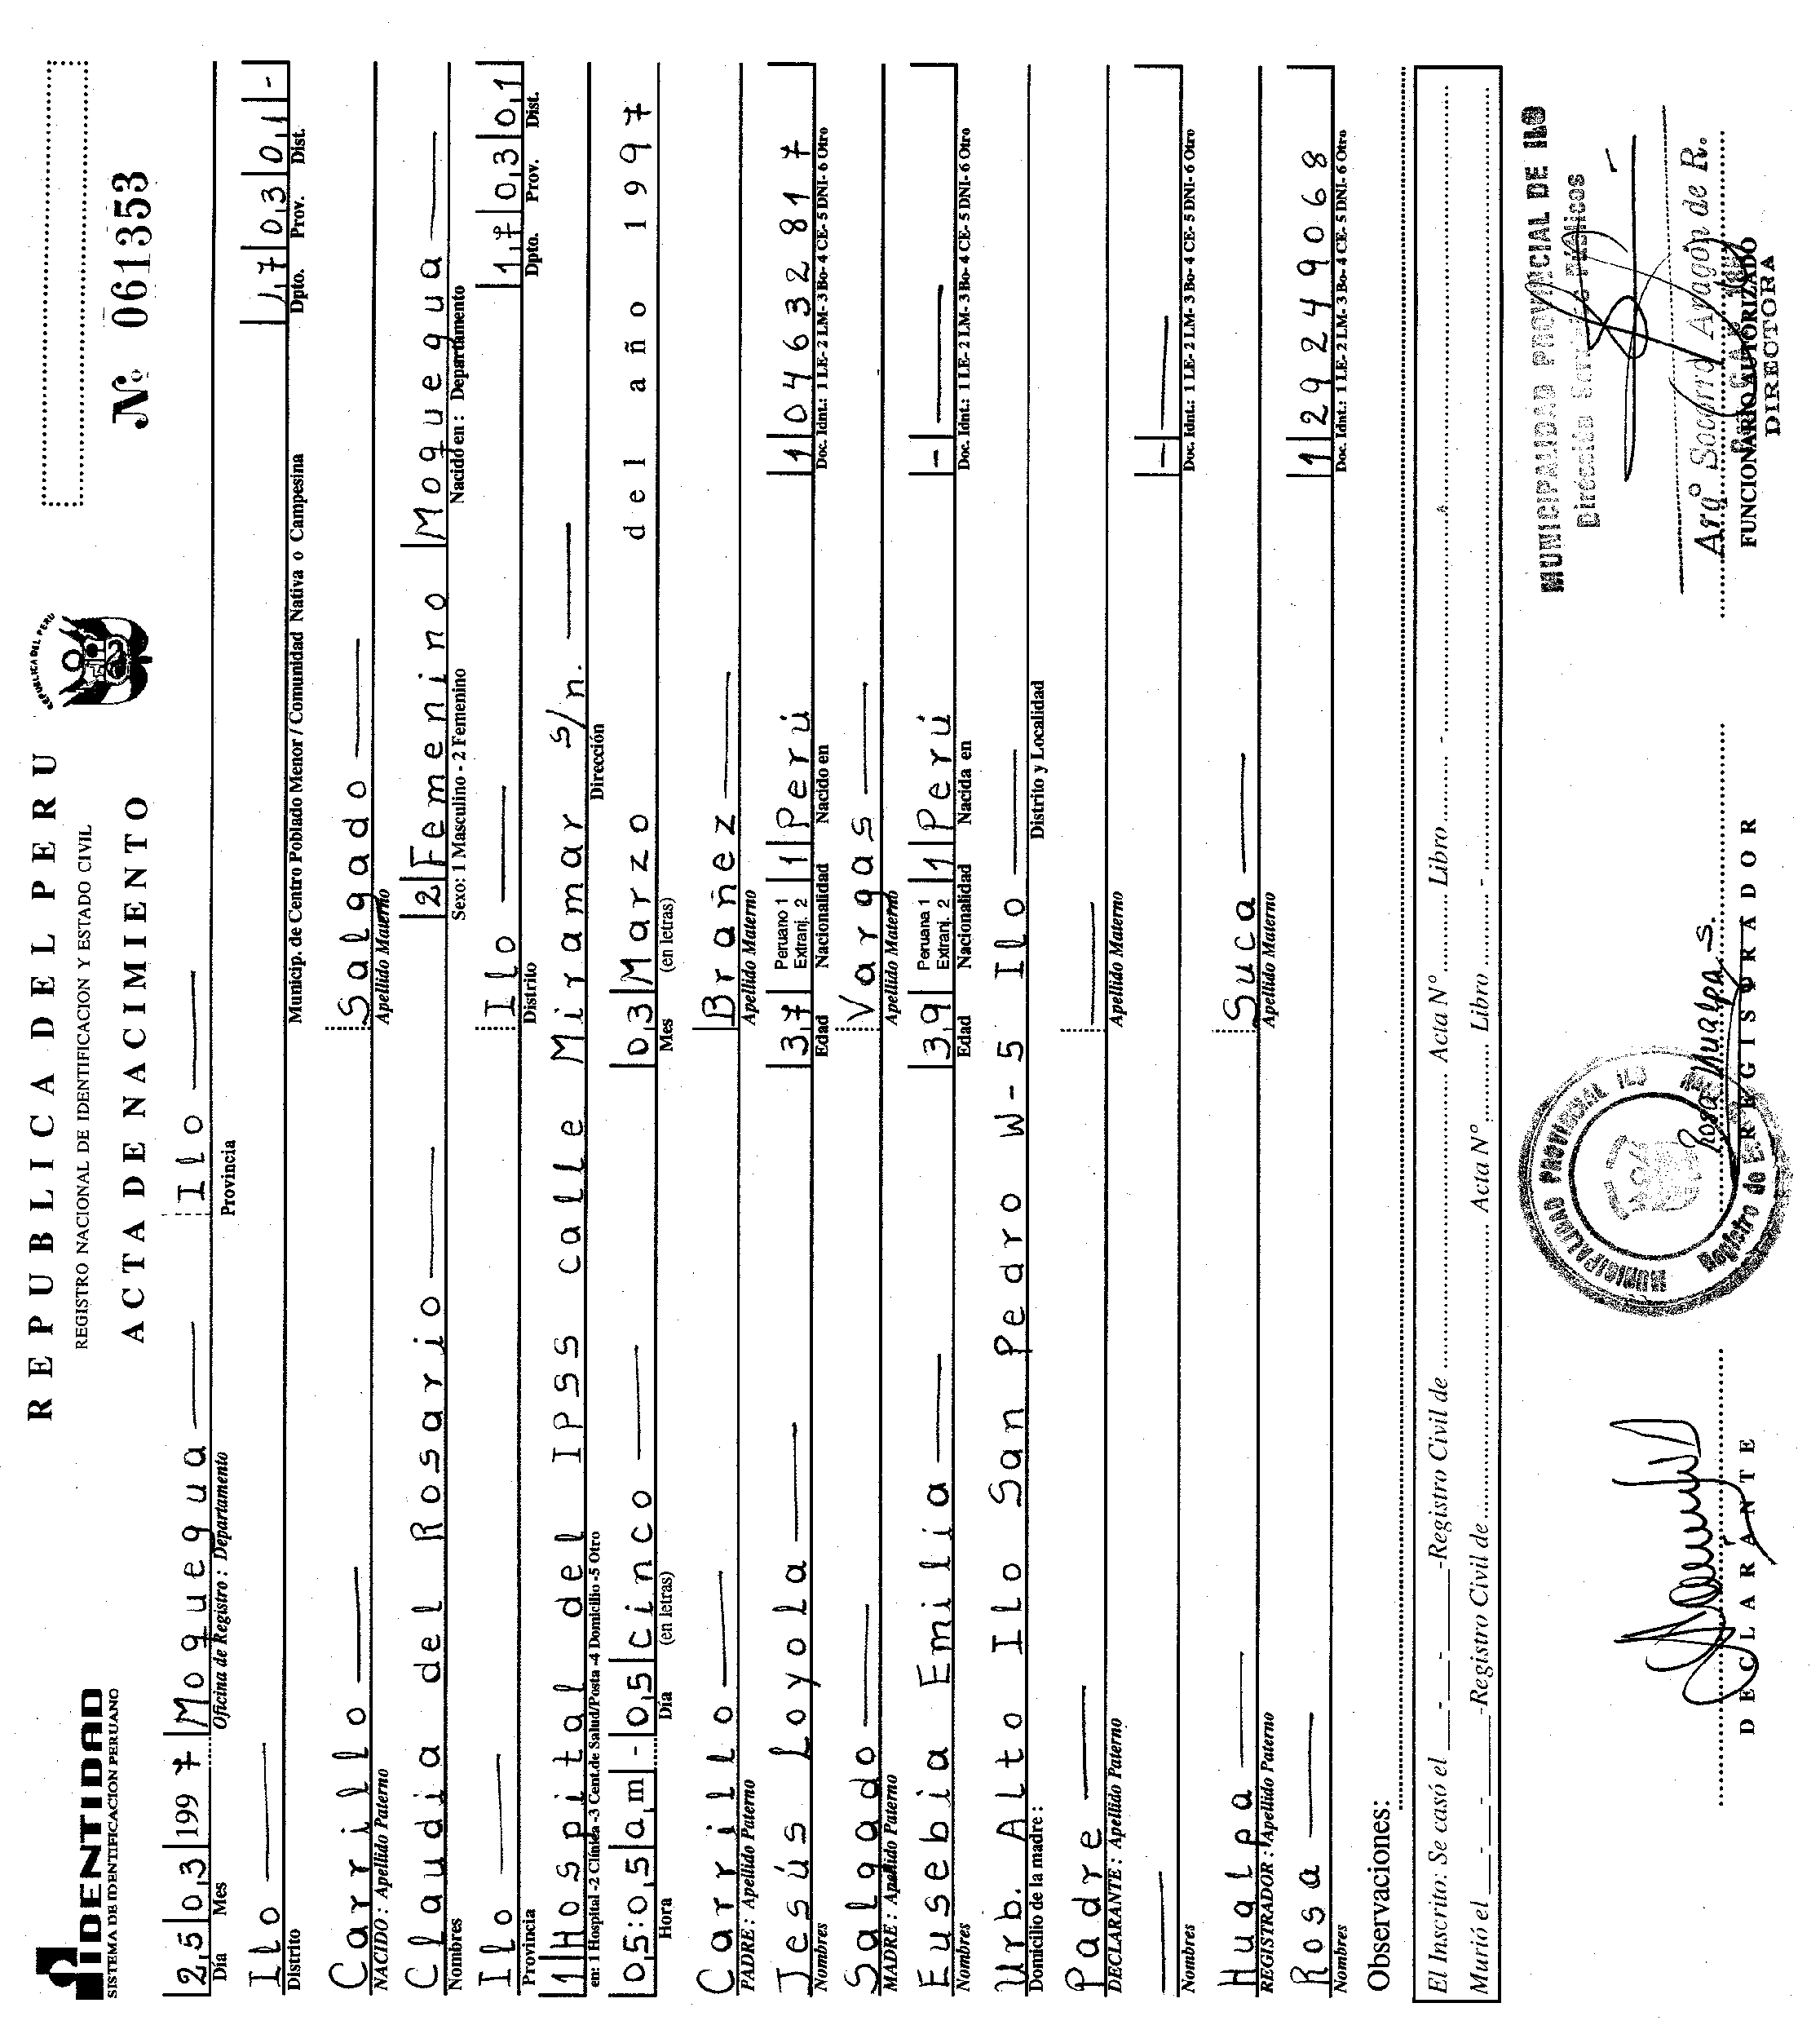 IDENTIDAD
SISTEMA DE IDENTIFICACION PERUANO
REPUBLICA DEL PERU
REGISTRO NACIONAL DE IDENTIFICACION Y ESTADO CIVIL
ACTA DE NACIMIENTO
REPUBLICA DEL PERU
Nº 061353
2,5|0,3|1997 Moquegua Ilo
Día Mes Oficina de Registro : Departamento Provincia
Ilo 1,7|0,3|0,1|-
Distrito Municip. de Centro Poblado Menor / Comunidad Nativa o Campesina Dpto. Prov. Dist.
Carrillo Salgado
NACIDO : Apellido Paterno Apellido Materno
Claudia del Rosario 2 Femenino Moquegua
Nombres Sexo: 1 Masculino - 2 Femenino Nacido en : Departamento
Ilo Ilo 1,7|0,3|0,1
Provincia Distrito Dpto. Prov. Dist.
1 Hospital del IPSS calle Miramar s/n.
en: 1 Hospital -2 Clínica -3 Cent.de Salud/Posta -4 Domicilio -5 Otro Dirección
0,5:0,5|a,m - 0,5 cinco 0,3 Marzo del año 1997
Hora Día (en letras) Mes (en letras)
Carrillo Brañez
PADRE : Apellido Paterno Apellido Materno
Jesús Loyola 3,7 Peruano 1 Extranj. 2 1 Perú 1 04632817
Nombres Edad Nacionalidad Nacido en Doc. Idnt.: 1 LE- 2 LM- 3 Bo- 4 CE- 5 DNI- 6 Otro
Salgado Vargas
MADRE : Apellido Paterno Apellido Materno
Eusebia Emilia 3,9 Peruana 1 Extranj. 2 1 Perú -
Nombres Edad Nacionalidad Nacida en Doc. Idnt.: 1 LE- 2 LM- 3 Bo- 4 CE- 5 DNI- 6 Otro
Urb. Alto Ilo San Pedro W-5 Ilo
Domicilio de la madre : Distrito y Localidad
Padre
DECLARANTE : Apellido Paterno Apellido Materno
-
Nombres Doc. Idnt.: 1 LE- 2 LM- 3 Bo- 4 CE- 5 DNI- 6 Otro
Hualpa Suca
REGISTRADOR : Apellido Paterno Apellido Materno
Rosa 1 29249068
Nombres Doc. Idnt.: 1 LE- 2 LM- 3 Bo- 4 CE- 5 DNI- 6 Otro
Observaciones:
El Inscrito: Se casó el - - -Registro Civil de Acta Nº Libro -
Murió el - - -Registro Civil de Acta Nº Libro -
MUNICIPALIDAD PROVINCIAL DE ILO
Dirección Servicios Públicos
MUNICIPALIDAD PROVINCIAL ILO
Registro de
Rosa Hualpa S.
Arqº Socorro Aragón de R.
DECLARANTE REGISTRADOR FUNCIONARIO AUTORIZADO
DIRECTORA